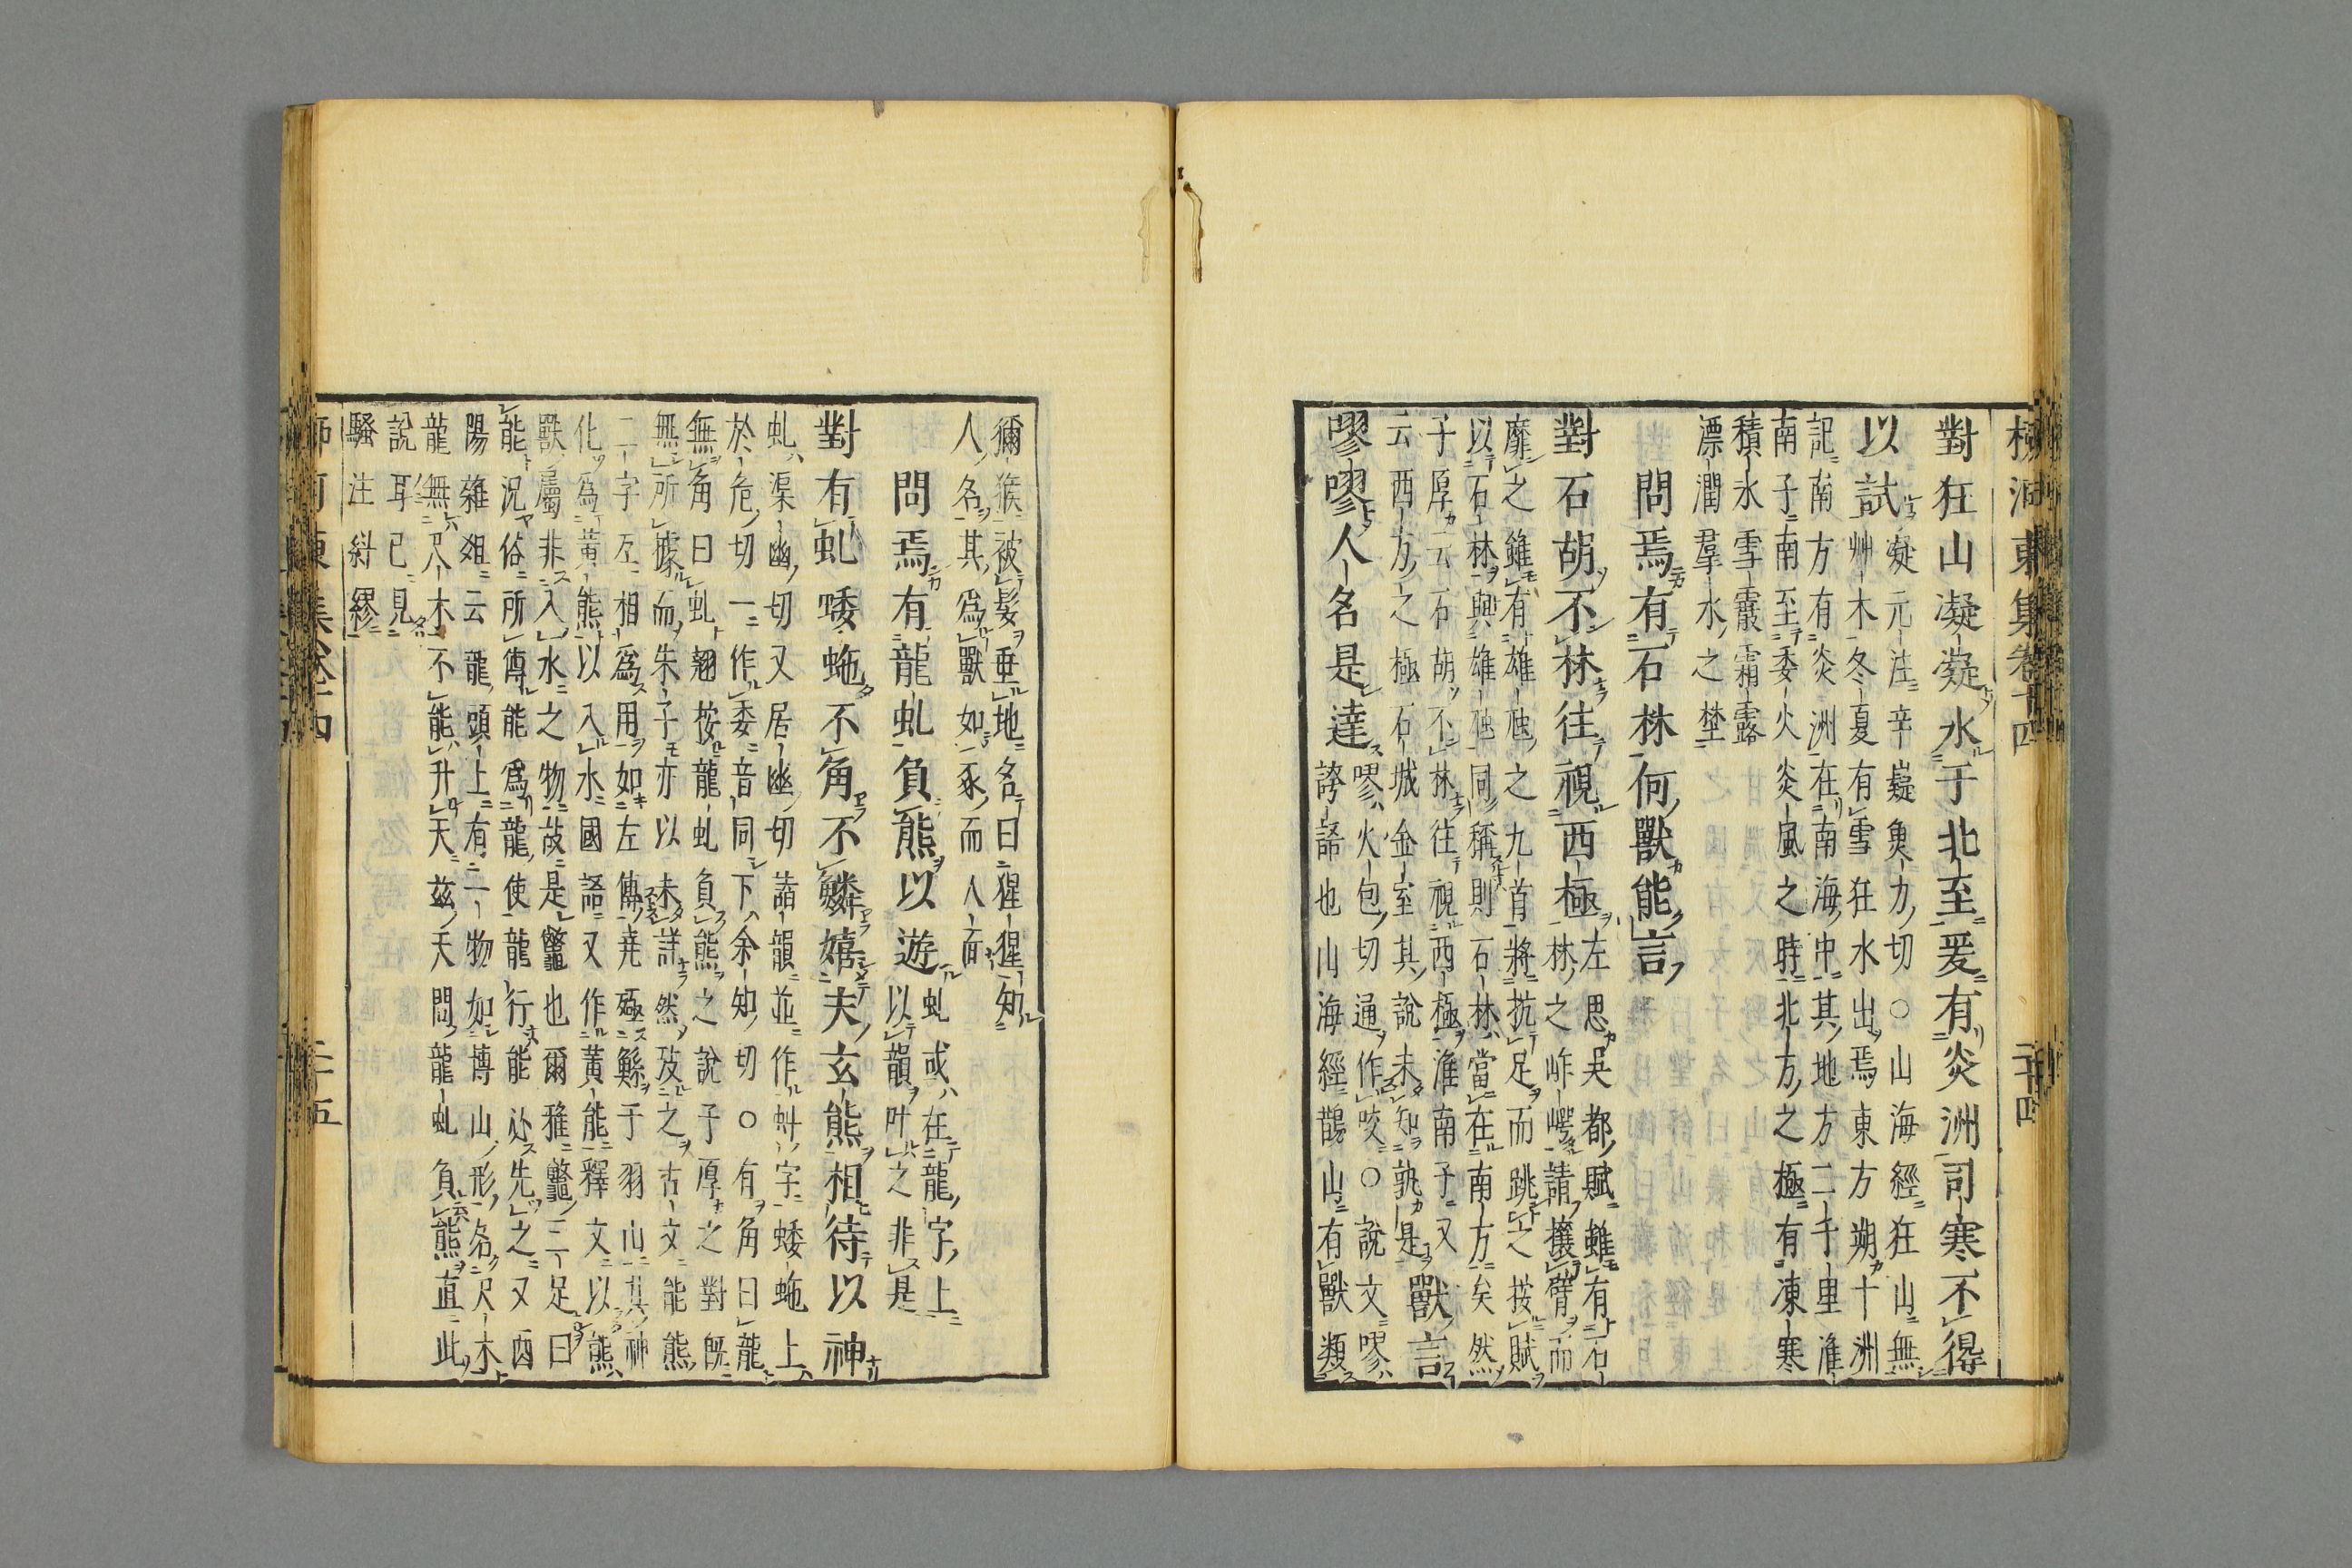 柳河東集卷十四　二十四
對狂山凝凝水于北至爰有炎洲司寒不得
以試
凝元注辛嶷魚力切○山海經狂山無
艸木冬夏有雪狂水出焉東方朔十洲
記南方有炎洲在南海中其地方二千里淮
南子南至委火炎風之時北方之極有凍寒
積氷雪霰霜露
漂潤羣水之埜
問焉有石林何獸能言
對石胡不林往視西極
左思吳都賦雖有石
林之岞崿請攘臂而
靡之雖有雄虺之九首將抗足而跳之按賦
以石林與雄虺同稱則石林當在南方矣然
子厚云石胡不林往視西極淮南子又
云西方之極石城金室其說未知孰是
獸言
嘐嘐人名是達
嘐火包切通作咬○說文嘐
誇語也山海經鵲山有獸類
獼猴被髮垂地名曰猩猩知
人名其爲獸如豕而人面
問焉有龍虬負熊以遊
虬或在龍字上
以韻叶之非是
對有虬蜲虵不角不鱗嬉夫玄熊相待以神
虬渠幽切又居幽切諸韻並作虯字蜲虵上
於危切一作委音同下余知切○有角曰龍
無角曰虬翹按龍虬負熊之說子厚之對旣
無所據而朱子亦以未詳然攷之古文能熊
二字互相爲用如左傳堯殛鯀于羽山其神
化爲黃熊以入水國語又作黃能釋文以熊
獸屬非入水之物故是鼈也爾雅鼈三足曰
能況俗所傳能爲龍使龍行能必先之又酉
陽雜俎云龍頭上有一物如博山形名尺木
龍無尺木不能升天茲天問龍虬負熊直此
說耳已見
騷注糾繆
柳河東集卷十四　二十五